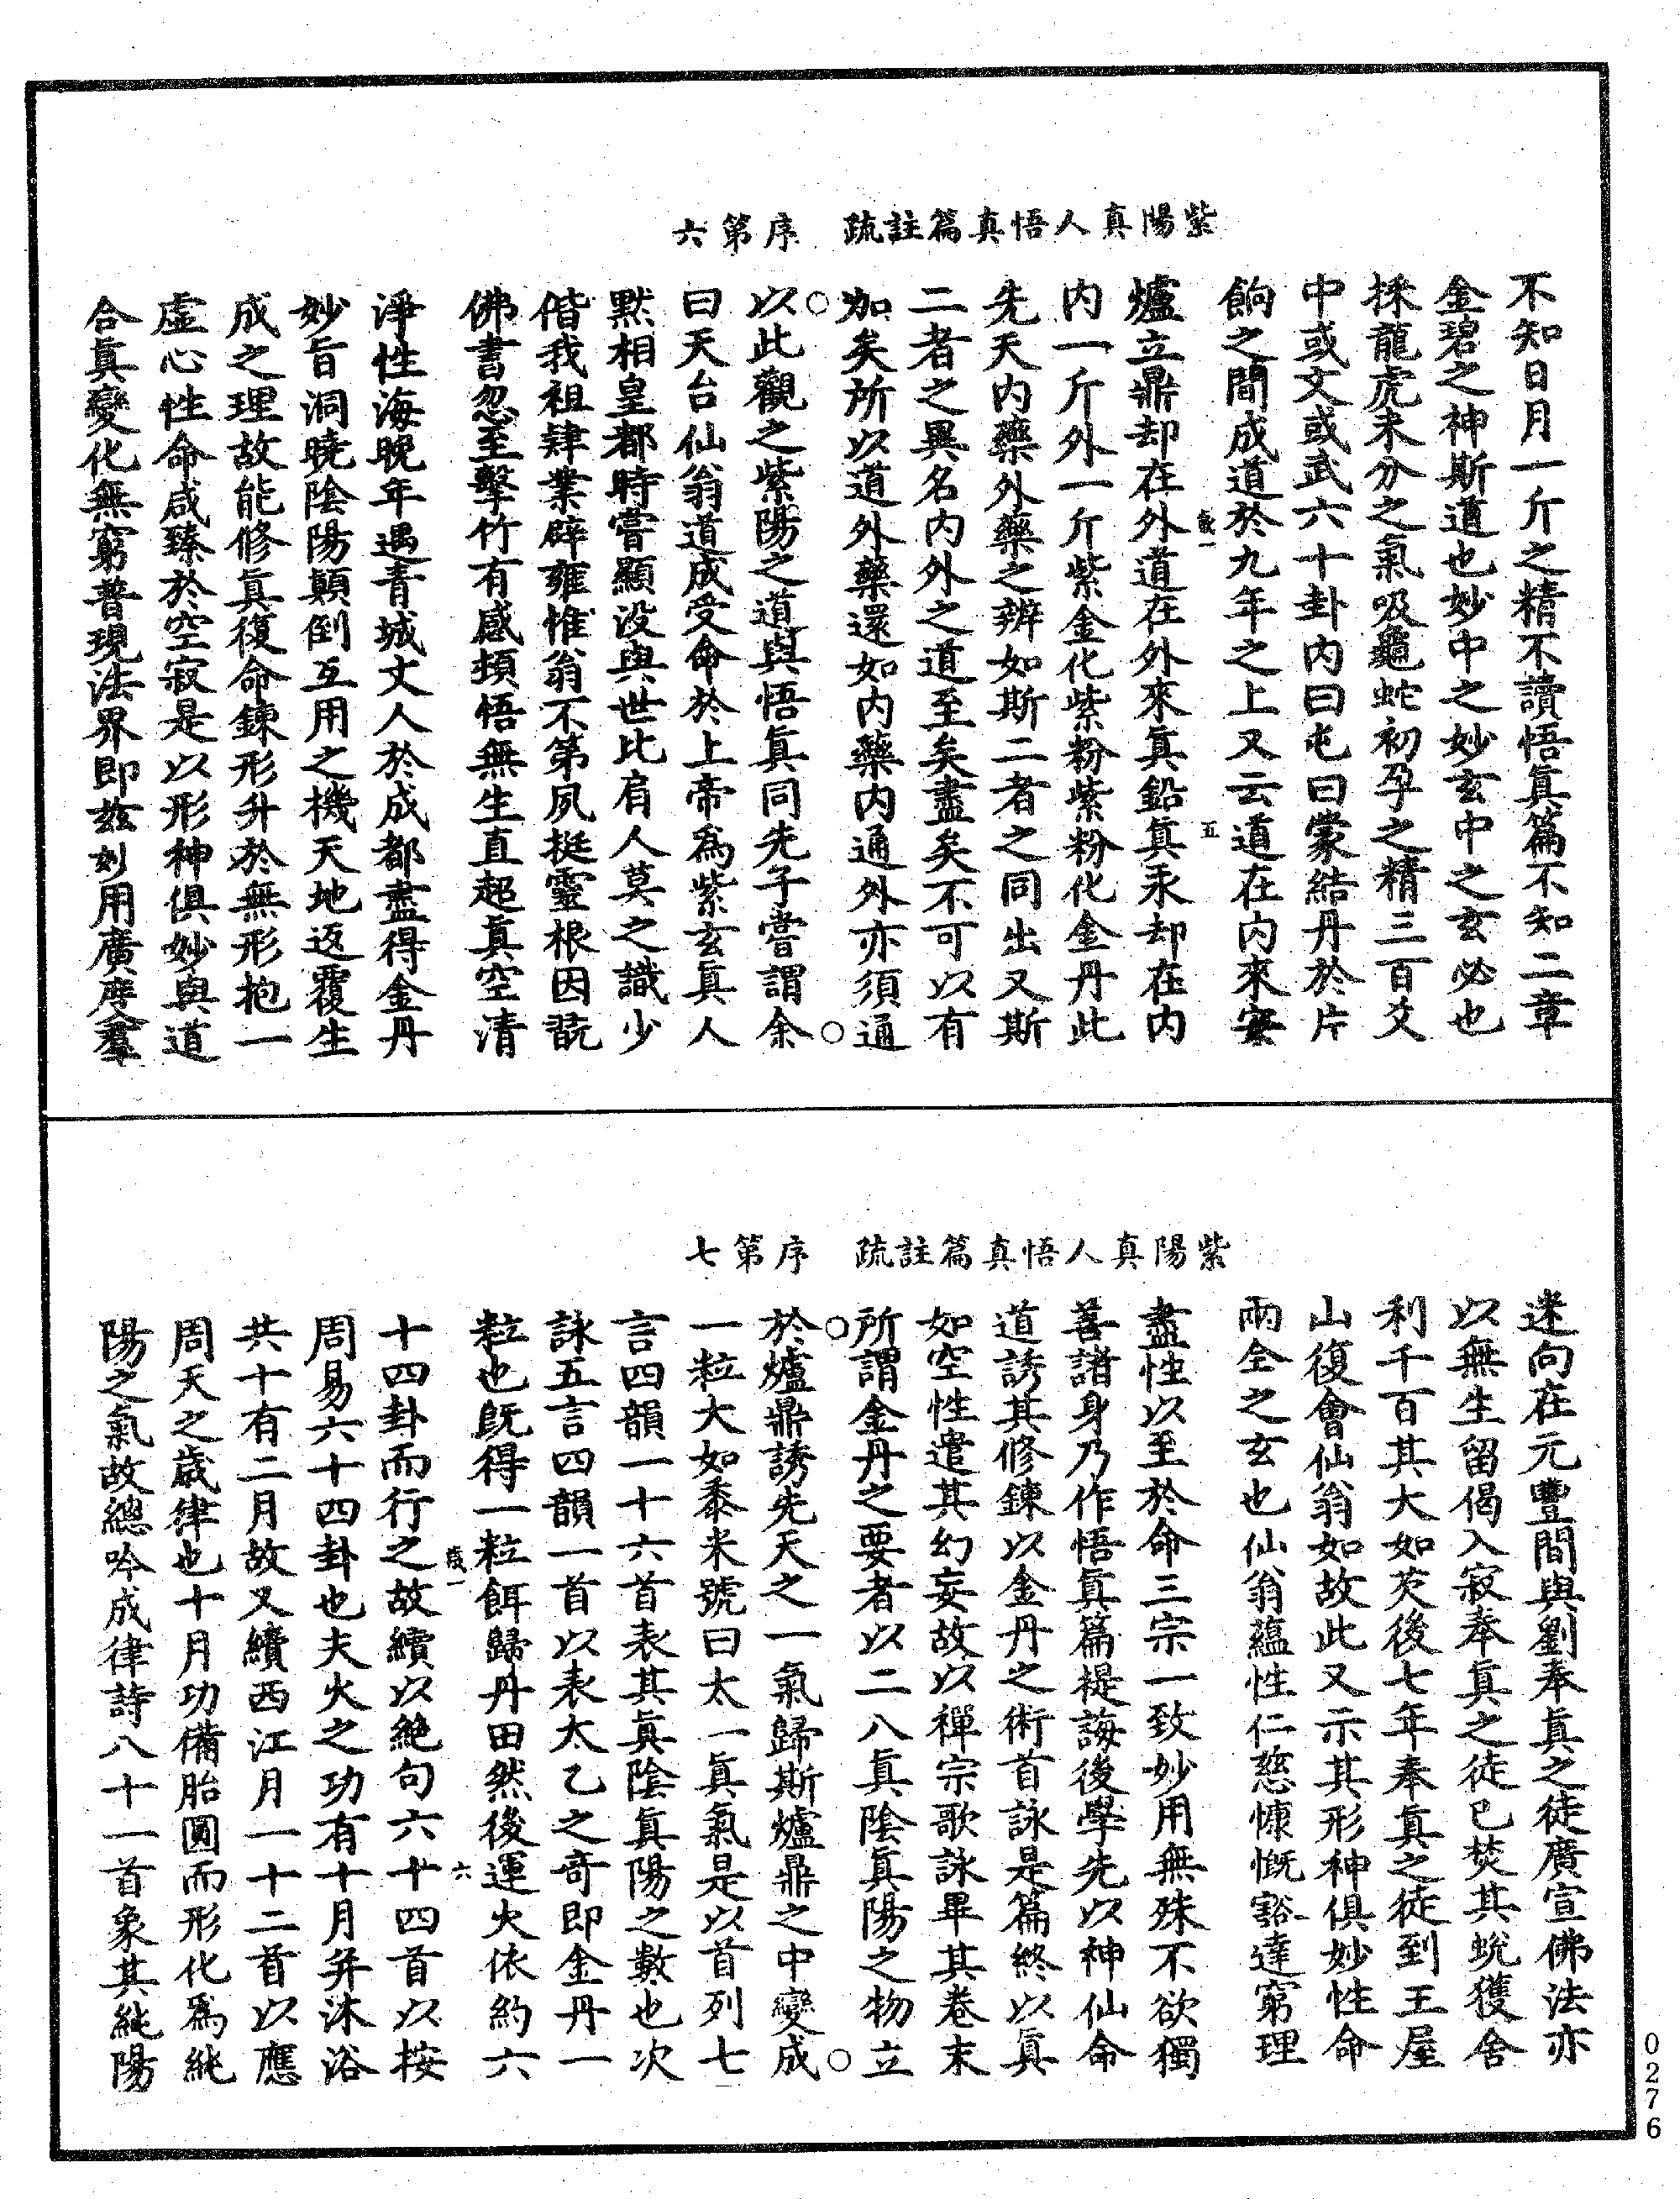 紫陽真人悟真篇註疏　序　第六
不知日月一斤之精不讀悟眞篇不知二章
金碧之神斯道也妙中之妙玄中之玄必也
採龍虎未分之氣吸龜蛇初孕之精三百爻
中或文或武六十卦内曰屯曰蒙結丹於片
餉之間成道於九年之上又云道在内來安
歲一
五
爐立鼎却在外道在外來眞鉛眞汞却在内
内一斤外一斤紫金化紫粉紫粉化金丹此
先天内藥外藥之辨如斯二者之同出又斯
二者之異名内外之道至矣盡矣不可以有
加矣所以道外藥還如内藥内通外亦須通
○
○
以此觀之紫陽之道與悟眞同先子嘗謂余
曰天台仙翁道成受命於上帝爲紫玄眞人
黙相皇都時嘗顯没與世比肩人莫之識少
偕我祖肄業辟雍惟翁不第夙挺靈根因翫
佛書忽至擊竹有感頓悟無生直超眞空清
淨性海晚年遇青城丈人於成都盡得金丹
妙旨洞曉陰陽顛倒互用之機天地返覆生
成之理故能修眞復命鍊形升於無形抱一
虚心性命咸臻於空寂是以形神俱妙與道
合眞變化無窮普現法界即兹妙用廣度羣
紫陽真人悟真篇註疏　序　第七
迷向在元豐間與劉奉眞之徒廣宣佛法亦
以無生留偈入寂奉眞之徒已焚其蛻獲舍
利千百其大如芡後七年奉眞之徒到王屋
山復會仙翁如故此又示其形神俱妙性命
兩全之玄也仙翁蘊性仁慈慷慨豁達窮理
盡性以至於命三宗一致妙用無殊不欲獨
善諸身乃作悟眞篇提誨後學先以神仙命
道誘其修鍊以金丹之術首詠是篇終以眞
如空性遣其幻妄故以禪宗歌詠畢其卷末
所謂金丹之要者以二八眞陰眞陽之物立
○
○
於爐鼎誘先天之一氣歸斯爐鼎之中變成
一粒大如黍米號曰太一眞氣是以首列七
言四韻一十六首表其眞陰眞陽之數也次
詠五言四韻一首以表太乙之奇即金丹一
粒也既得一粒餌歸丹田然後運火依約六
歲一
六
十四卦而行之故續以絶句六十四首以按
周易六十四卦也夫火之功有十月并沐浴
共十有二月故又續西江月一十二首以應
周天之歲律也十月功備胎圓而形化爲純
陽之氣故總吟成律詩八十一首象其純陽
0276